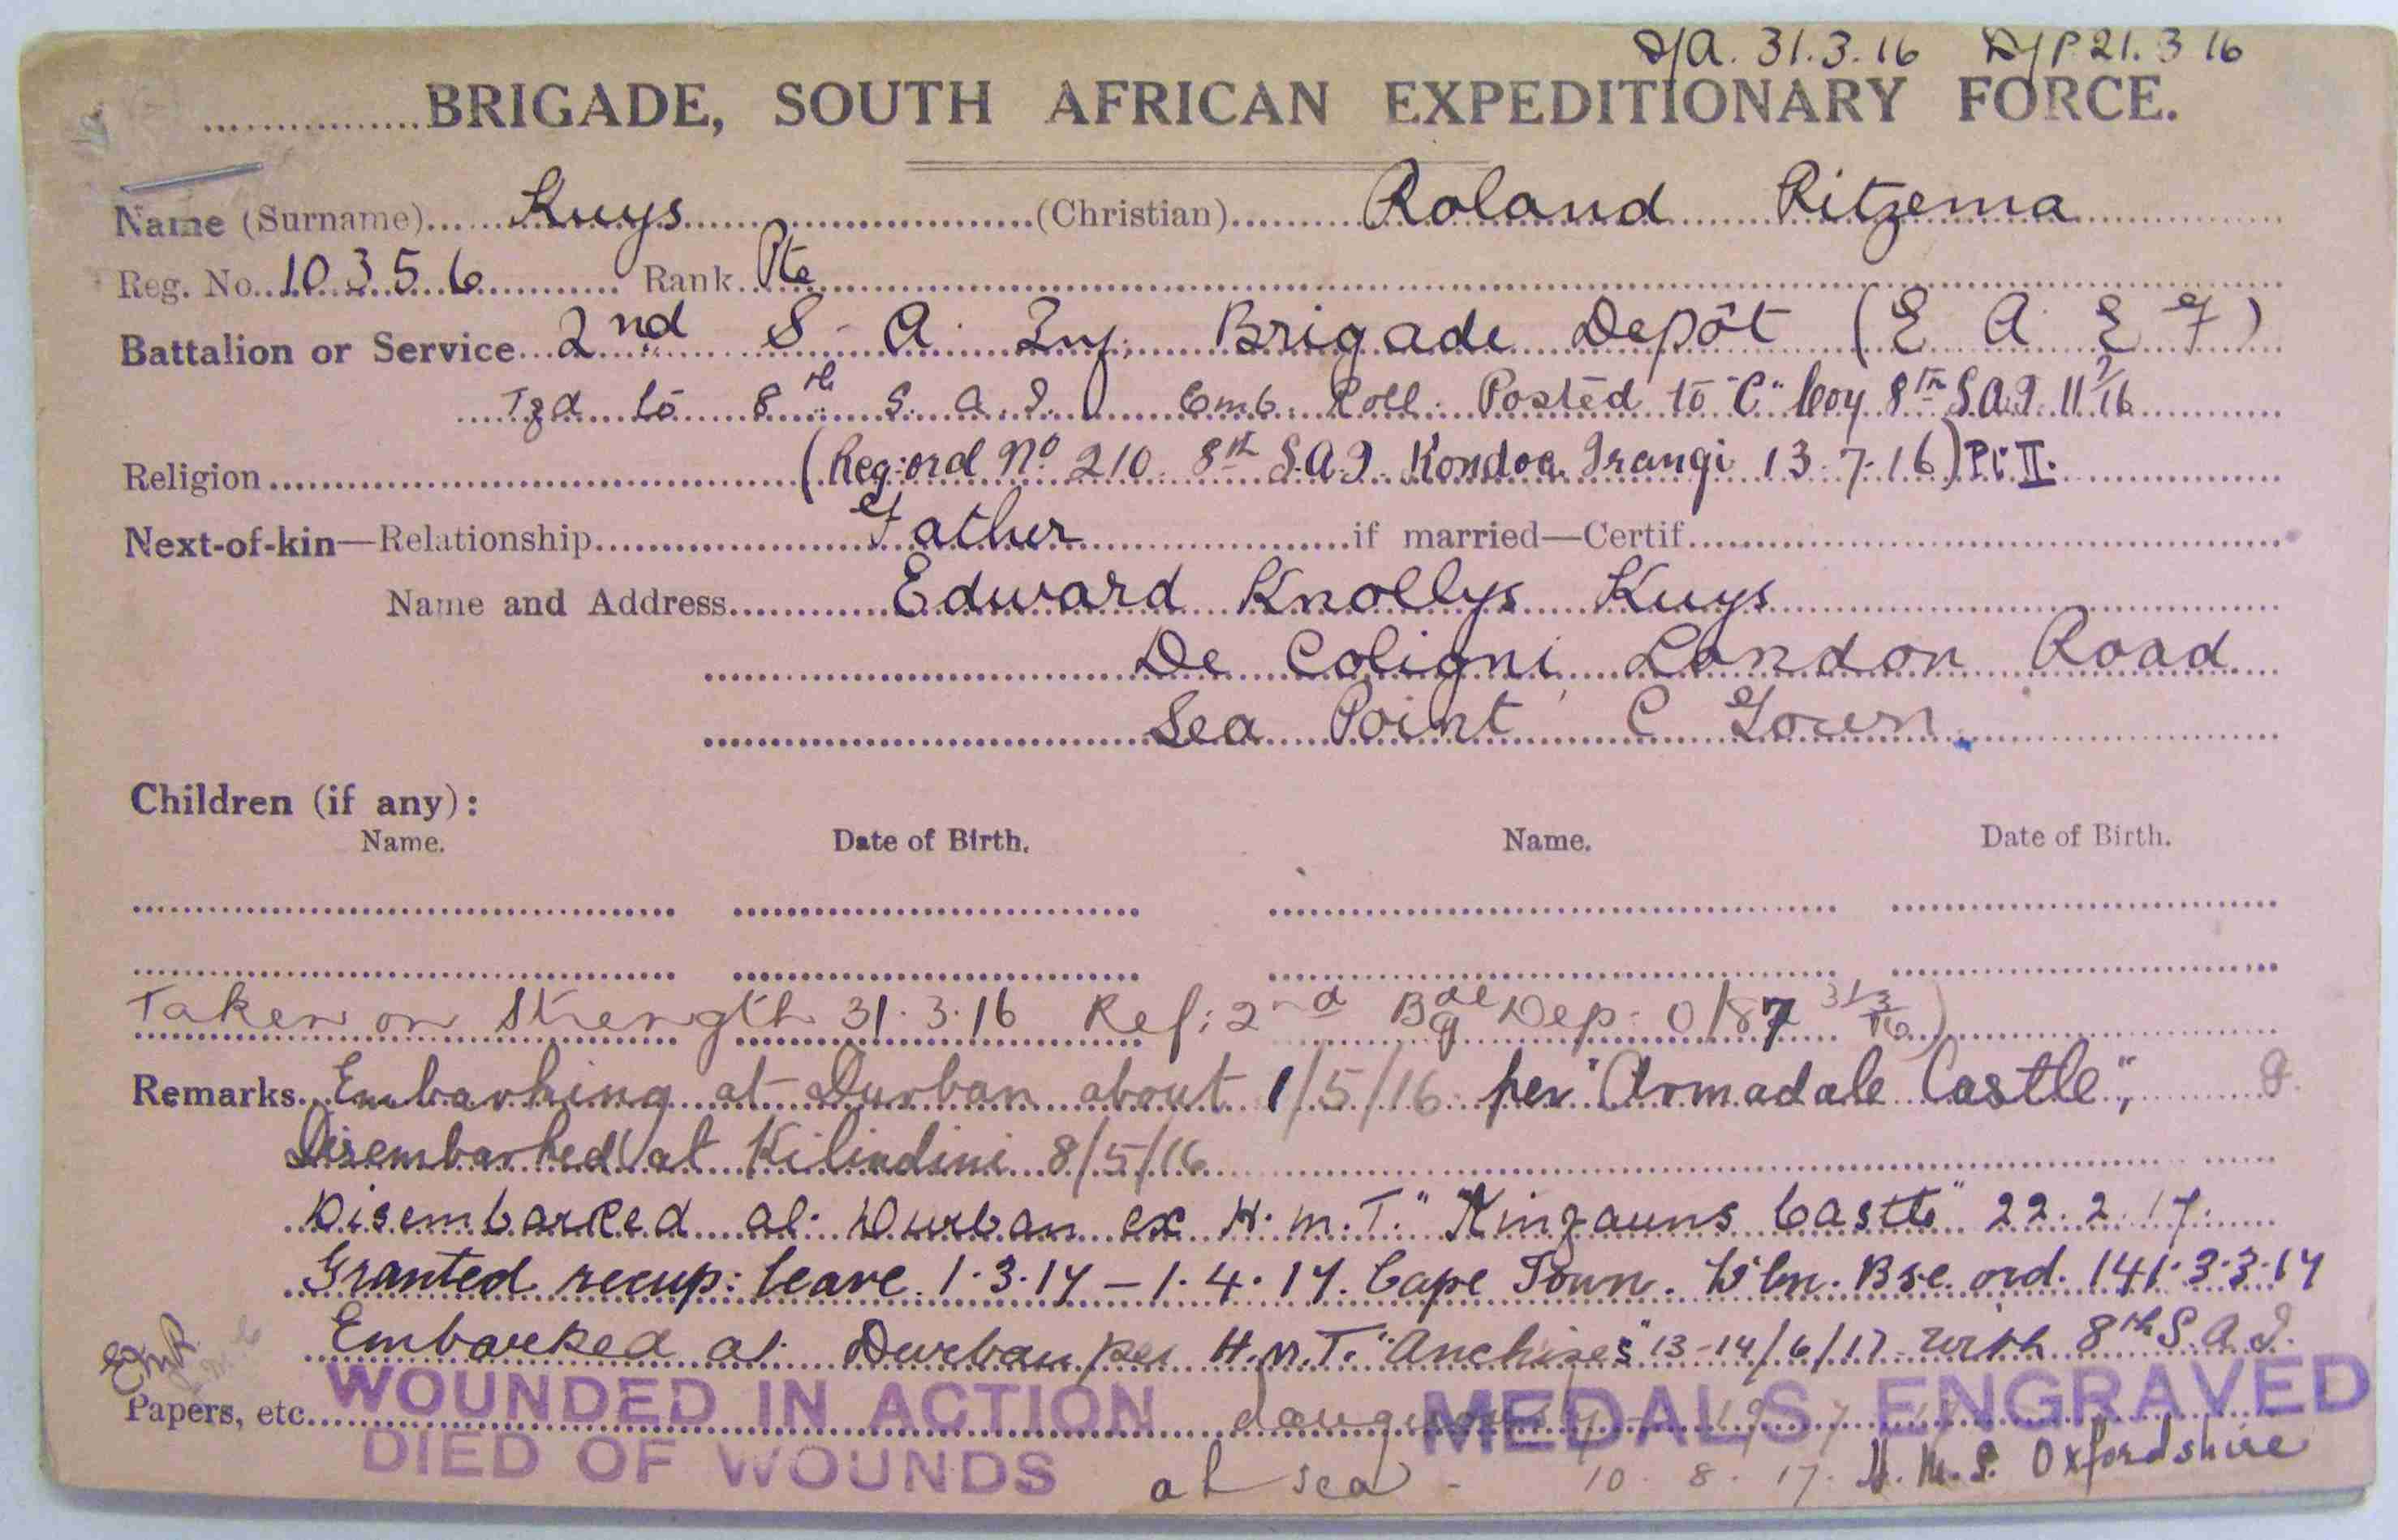 D/A. 31.3.16 D/P 21.3 16
BRIGADE, SOUTH AFRICAN EXPEDITIONARY FORCE.
Name (Surname) Kuys (Christian) Roland Ritzema
Reg. No. 10356 Rank Pte
Battalion or Service 2nd S. A. Inf. Brigade Depôt (E A E F)
Tfd to 8th S. A. I. Emb. Roll. Posted to "C" Coy 8th S.A.I. 11/7/16
Religion (Reg: ord No. 210. 8th S.A.I. Kondoa Irangi 13.7.16) Pt II.
Next-of-kin—Relationship Father if married—Certif
Name and Address Edward Knollys Kuys
De Coligni, London Road
Sea Point, C Town.
Children (if any):
Name. Date of Birth. Name. Date of Birth.
Taken on Strength 31.3.16 Ref: 2nd Bgde Dep. O/87 31/3/16)
Remarks Embarking at Durban about 1/5/16 per "Armadale Castle",
Disembarked at Kilindini 8/5/16
Disembarked at Durban ex H.M.T. "Kinfauns Castle" 22.2.17.
Granted recup: leave 1.3.17 — 1.4.17. Cape Town. Bse. ord. 141. 3.3.17
Embarked at Durban per H.M.T. "Anchises" 13-14/6/17 with 8th S.A.I.
Papers, etc. WOUNDED IN ACTION dangerously MEDALS ENGRAVED
DIED OF WOUNDS at sea - 10.8.17. H.M.S. Oxfordshire